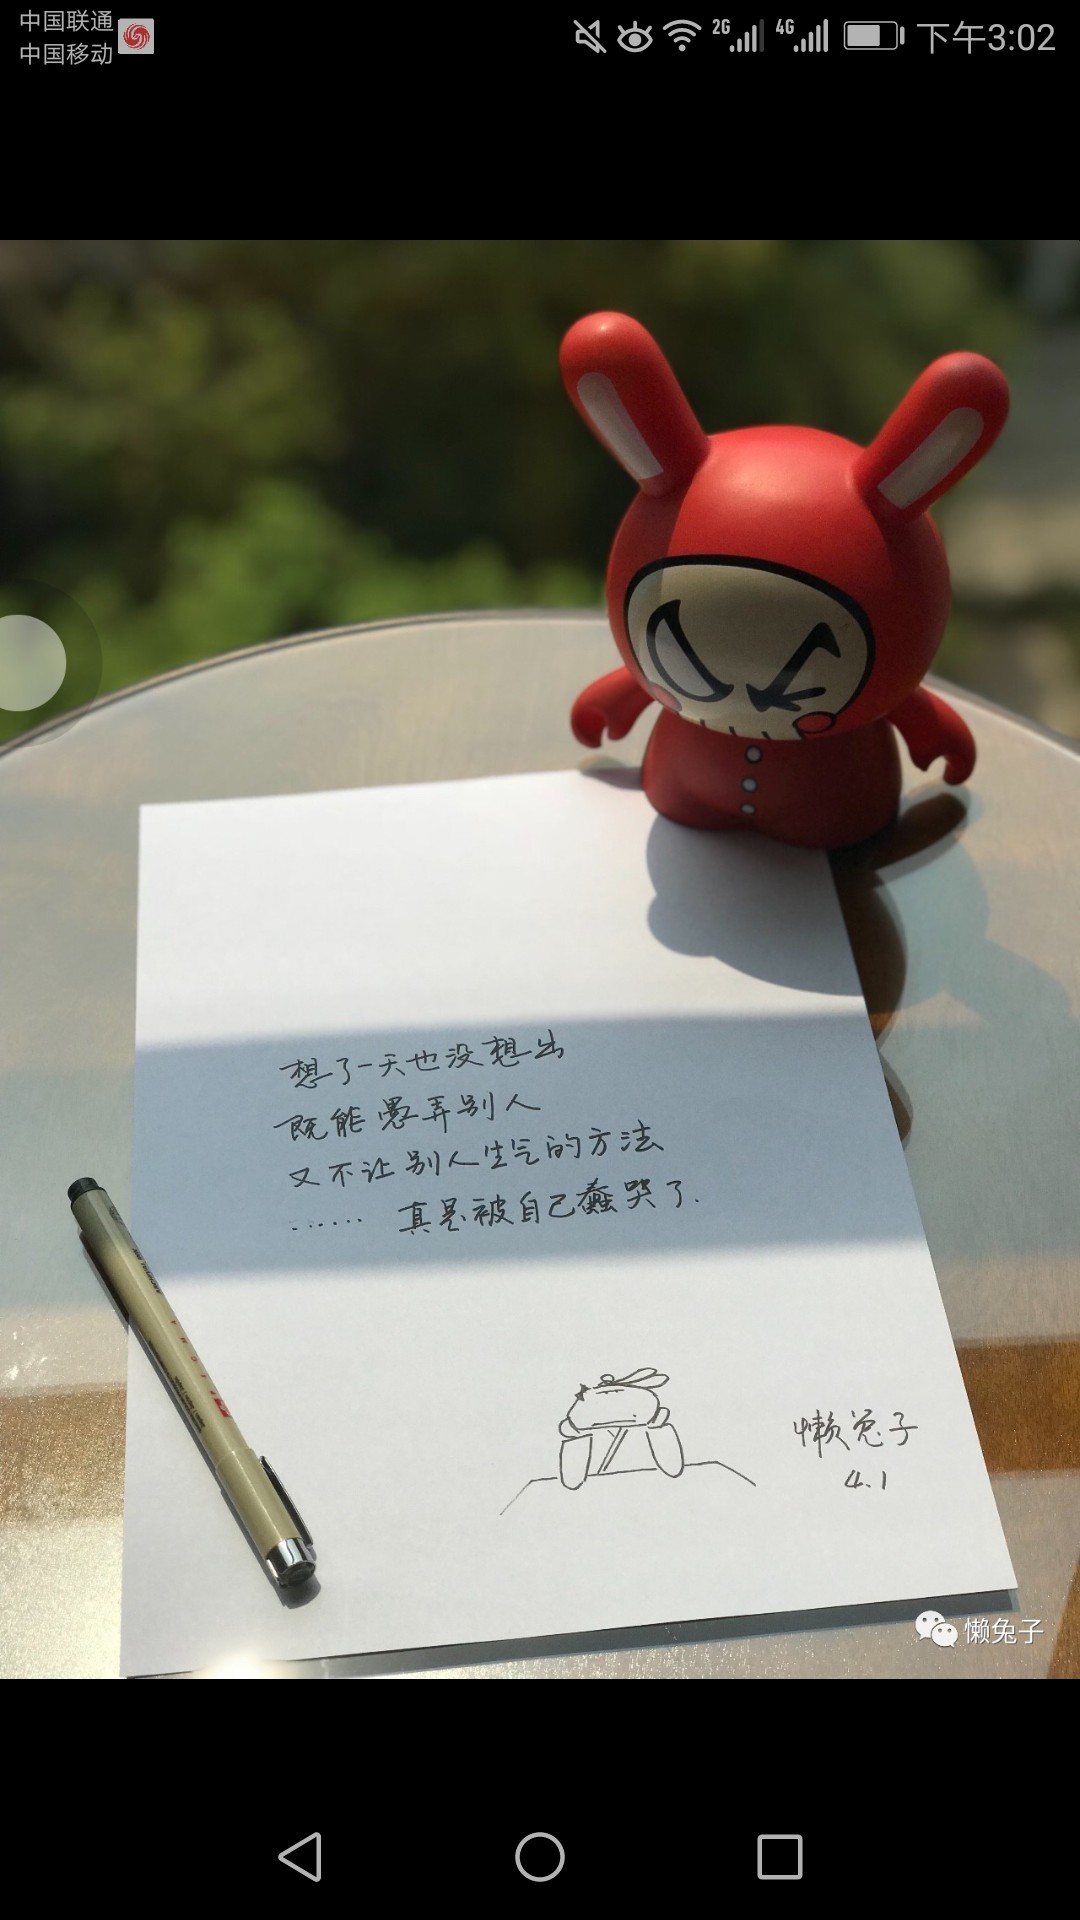 中国联通
中国移动
2G
4G
下午3:02
想了一天也没想出
既能愚弄别人
又不让别人生气的方法
······ 真是被自己蠢哭了.
懒兔子
4.1
懒兔子